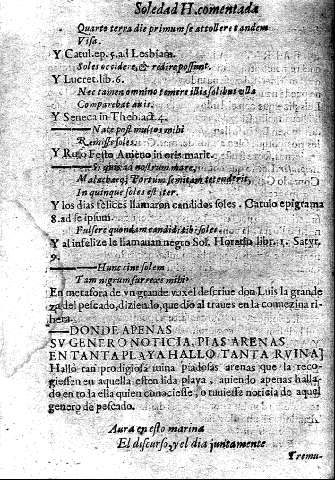 Soledad II. comentada
Quarto terra die primum se attollere tandem
Visa.
Y Catul. ep. 5. ad Lesbiam.
Soles occidere, & redire possunt.
Y Lucret. lib. 6.
Nec tamen omnino temere illis solibus ulla
Comparebat auis.
Y Seneca in Thebaid. 4.
Nate post multos mihi
Remisse soles.
Y Rufo Festo Auieno in oris marit.
Si quis ad nostrum mare,
Malacheq; Portum semitam tetenderit,
In quinque soles est iter.
Y los dias felices llamaron candidos soles. Catulo epigrama
8. ad se ipsum.
Fulsere quondam candidi tibi soles.
Y al infelize le llamauan negro Sol. Horatio libr. 1. Satyr.
9.
Hunc cine solem
Tam nigrum surrexe mihi?
En metafora de vn grande vaxel descriue don Luis la grande
za del pescado, diziendo, que dio al traues en la conuezina ri-
bera.
DONDE APENAS
SV GENERO NOTICIA, PIAS ARENAS
EN TANTA PLAYA HALLÒ TANTA RVINA]
Hallò tan prodigiosa ruina piadosas arenas que la reco-
giessen en aquella estendida playa, auiendo apenas halla-
do en toda ella quien conociesse, o tuuiesse noticia de aquel
genero de pescado.
Aura en esto marina
El discurso, y el dia juntamente
Tremu-